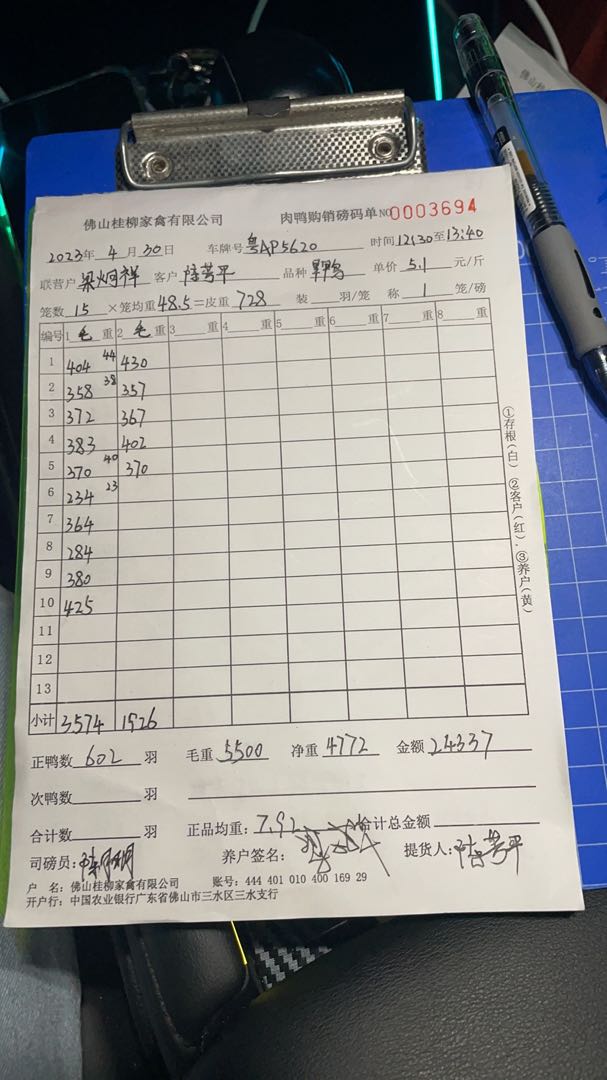 佛山桂柳
佛山桂柳家禽有限公司 肉鸭购销磅码单 NO0003694
2023年 4 月 30 日 车牌号 粤AP5620 时间 12:30至13:40
联营户 梁炯祥 客户 陆芳平 品种 单价 5.1 元/斤
笼数 15 ×笼均重 48.5 =皮重 728 装 羽/笼 称 1 笼/磅
编号 1 毛 重 2 毛 重 3 重 4 重 5 重 6 重 7 重 8 重
1 404 44 430
2 358 38 357
3 372 367
4 383 402
5 370 40 370
6 234 23
7 364
8 284
9 380
10 425
11
12
13
小计 3574 1926
①存根(白) ②客户(红) ③养户(黄)
正鸭数 602 羽 毛重 5500 净重 4772 金额 24337
次鸭数 羽
合计数 羽 正品均重: 7.92 合计总金额
司磅员: 养户签名: 提货人: 陆芳平
户 名: 佛山桂柳家禽有限公司 账号: 444 401 010 400 169 29
开户行: 中国农业银行广东省佛山市三水区三水支行